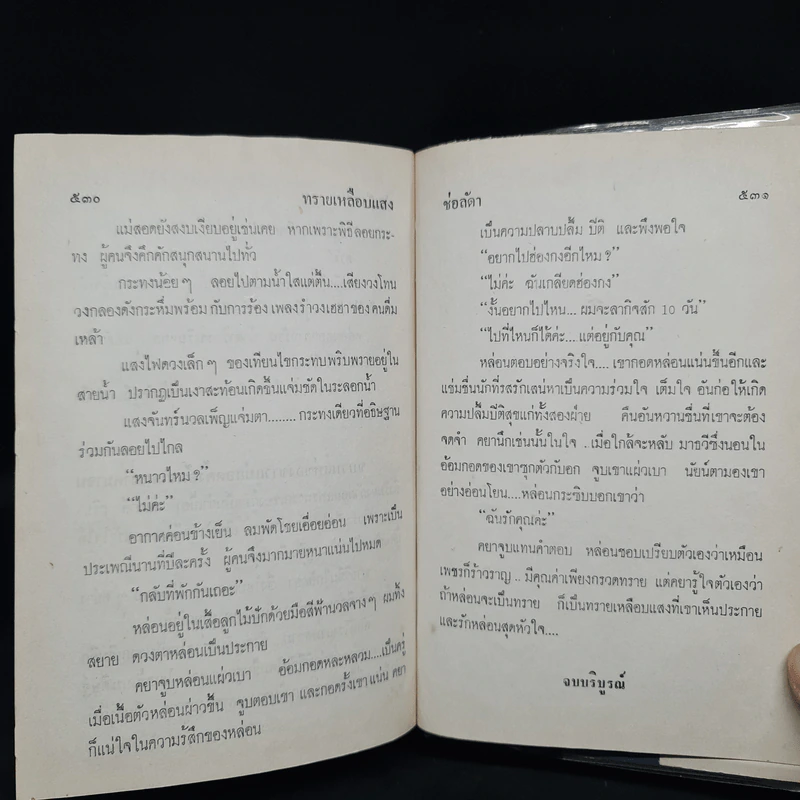 ๕๓๐
ทรายเหลือบแสง
แม่สอดยังสงบเงียบอยู่เช่นเคย หากเพราะพิธีลอยกระ-
ทง ผู้คนจึงคึกคักสนุกสนานไปทั่ว
กระทงน้อยๆ ลอยไปตามน้ำใสแต่ตื้น....เสียงวงโทน
วงกลองดังกระหึ่มพร้อมกับการร้องเพลงรำวงเฮฮาของคนดื่ม
เหล้า
แสงไฟดวงเล็กๆ ของเทียนไขกระทบพริบพรายอยู่ใน
สายน้ำ ปรากฏเป็นเงาสะท้อนเกิดขึ้นแจ่มชัดในระลอกน้ำ
แสงจันทร์นวลเพ็ญแจ่มตา........กระทงเดียวที่อธิษฐาน
ร่วมกันลอยไปไกล
“หนาวไหม?”
“ไม่ค่ะ”
อากาศค่อนข้างเย็น ลมพัดโชยเอื่อยอ่อน เพราะเป็น
ประเพณีนานทีปีละครั้ง ผู้คนจึงมากมายหนาแน่นไปหมด
“กลับที่พักกันเถอะ”
หล่อนอยู่ในเสื้อลูกไม้ปักด้วยมือสีฟ้านวลจางๆ ผมทิ้ง
สยาย ดวงตาหล่อนเป็นประกาย
คยาจูบหล่อนแผ่วเบา อ้อมกอดหละหลวม....เป็นครู่
เมื่อเนื้อตัวหล่อนผ่าวขึ้น จูบตอบเขา และกอดรั้งเขาแน่น คยา
ก็แน่ใจในความรู้สึกของหล่อน
ช่อลัดา
๕๓๑
เป็นความปลาบปลื้ม ปีติ และพึงพอใจ
“อยากไปฮ่องกงอีกไหม?”
“ไม่ค่ะ ฉันเกลียดฮ่องกง”
“งั้นอยากไปไหน...ผมจะลากิจสัก 10 วัน”
“ไปที่ไหนก็ได้ค่ะ...แต่อยู่กับคุณ”
หล่อนตอบอย่างจริงใจ....เขากอดหล่อนแน่นขึ้นอีกและ
แช่มชื่นนักที่รสรักเสน่หาเป็นความร่วมใจ เต็มใจ อันก่อให้เกิด
ความปลื้มปีติสุขแก่ทั้งสองฝ่าย คืนอันหวานชื่นที่เขาจะต้อง
จดจำ คยานึกเช่นนั้นในใจ..เมื่อใกล้จะหลับ มาธวีซึ่งนอนใน
อ้อมกอดของเขาซุกตัวกับอก จูบเขาแผ่วเบา นัยน์ตามองเขา
อย่างอ่อนโยน....หล่อนกระซิบบอกเขาว่า
“ฉันรักคุณค่ะ”
คยาจูบแทนคำตอบ หล่อนชอบเปรียบตัวเองว่าเหมือน
เพชรก็ร้าวราญ..มีคุณค่าเพียงกรวดทราย แต่คยารู้ใจตัวเองว่า
ถ้าหล่อนจะเป็นทราย ก็เป็นทรายเหลือบแสงที่เขาเห็นประกาย
และรักหล่อนสุดหัวใจ....
จบบริบูรณ์